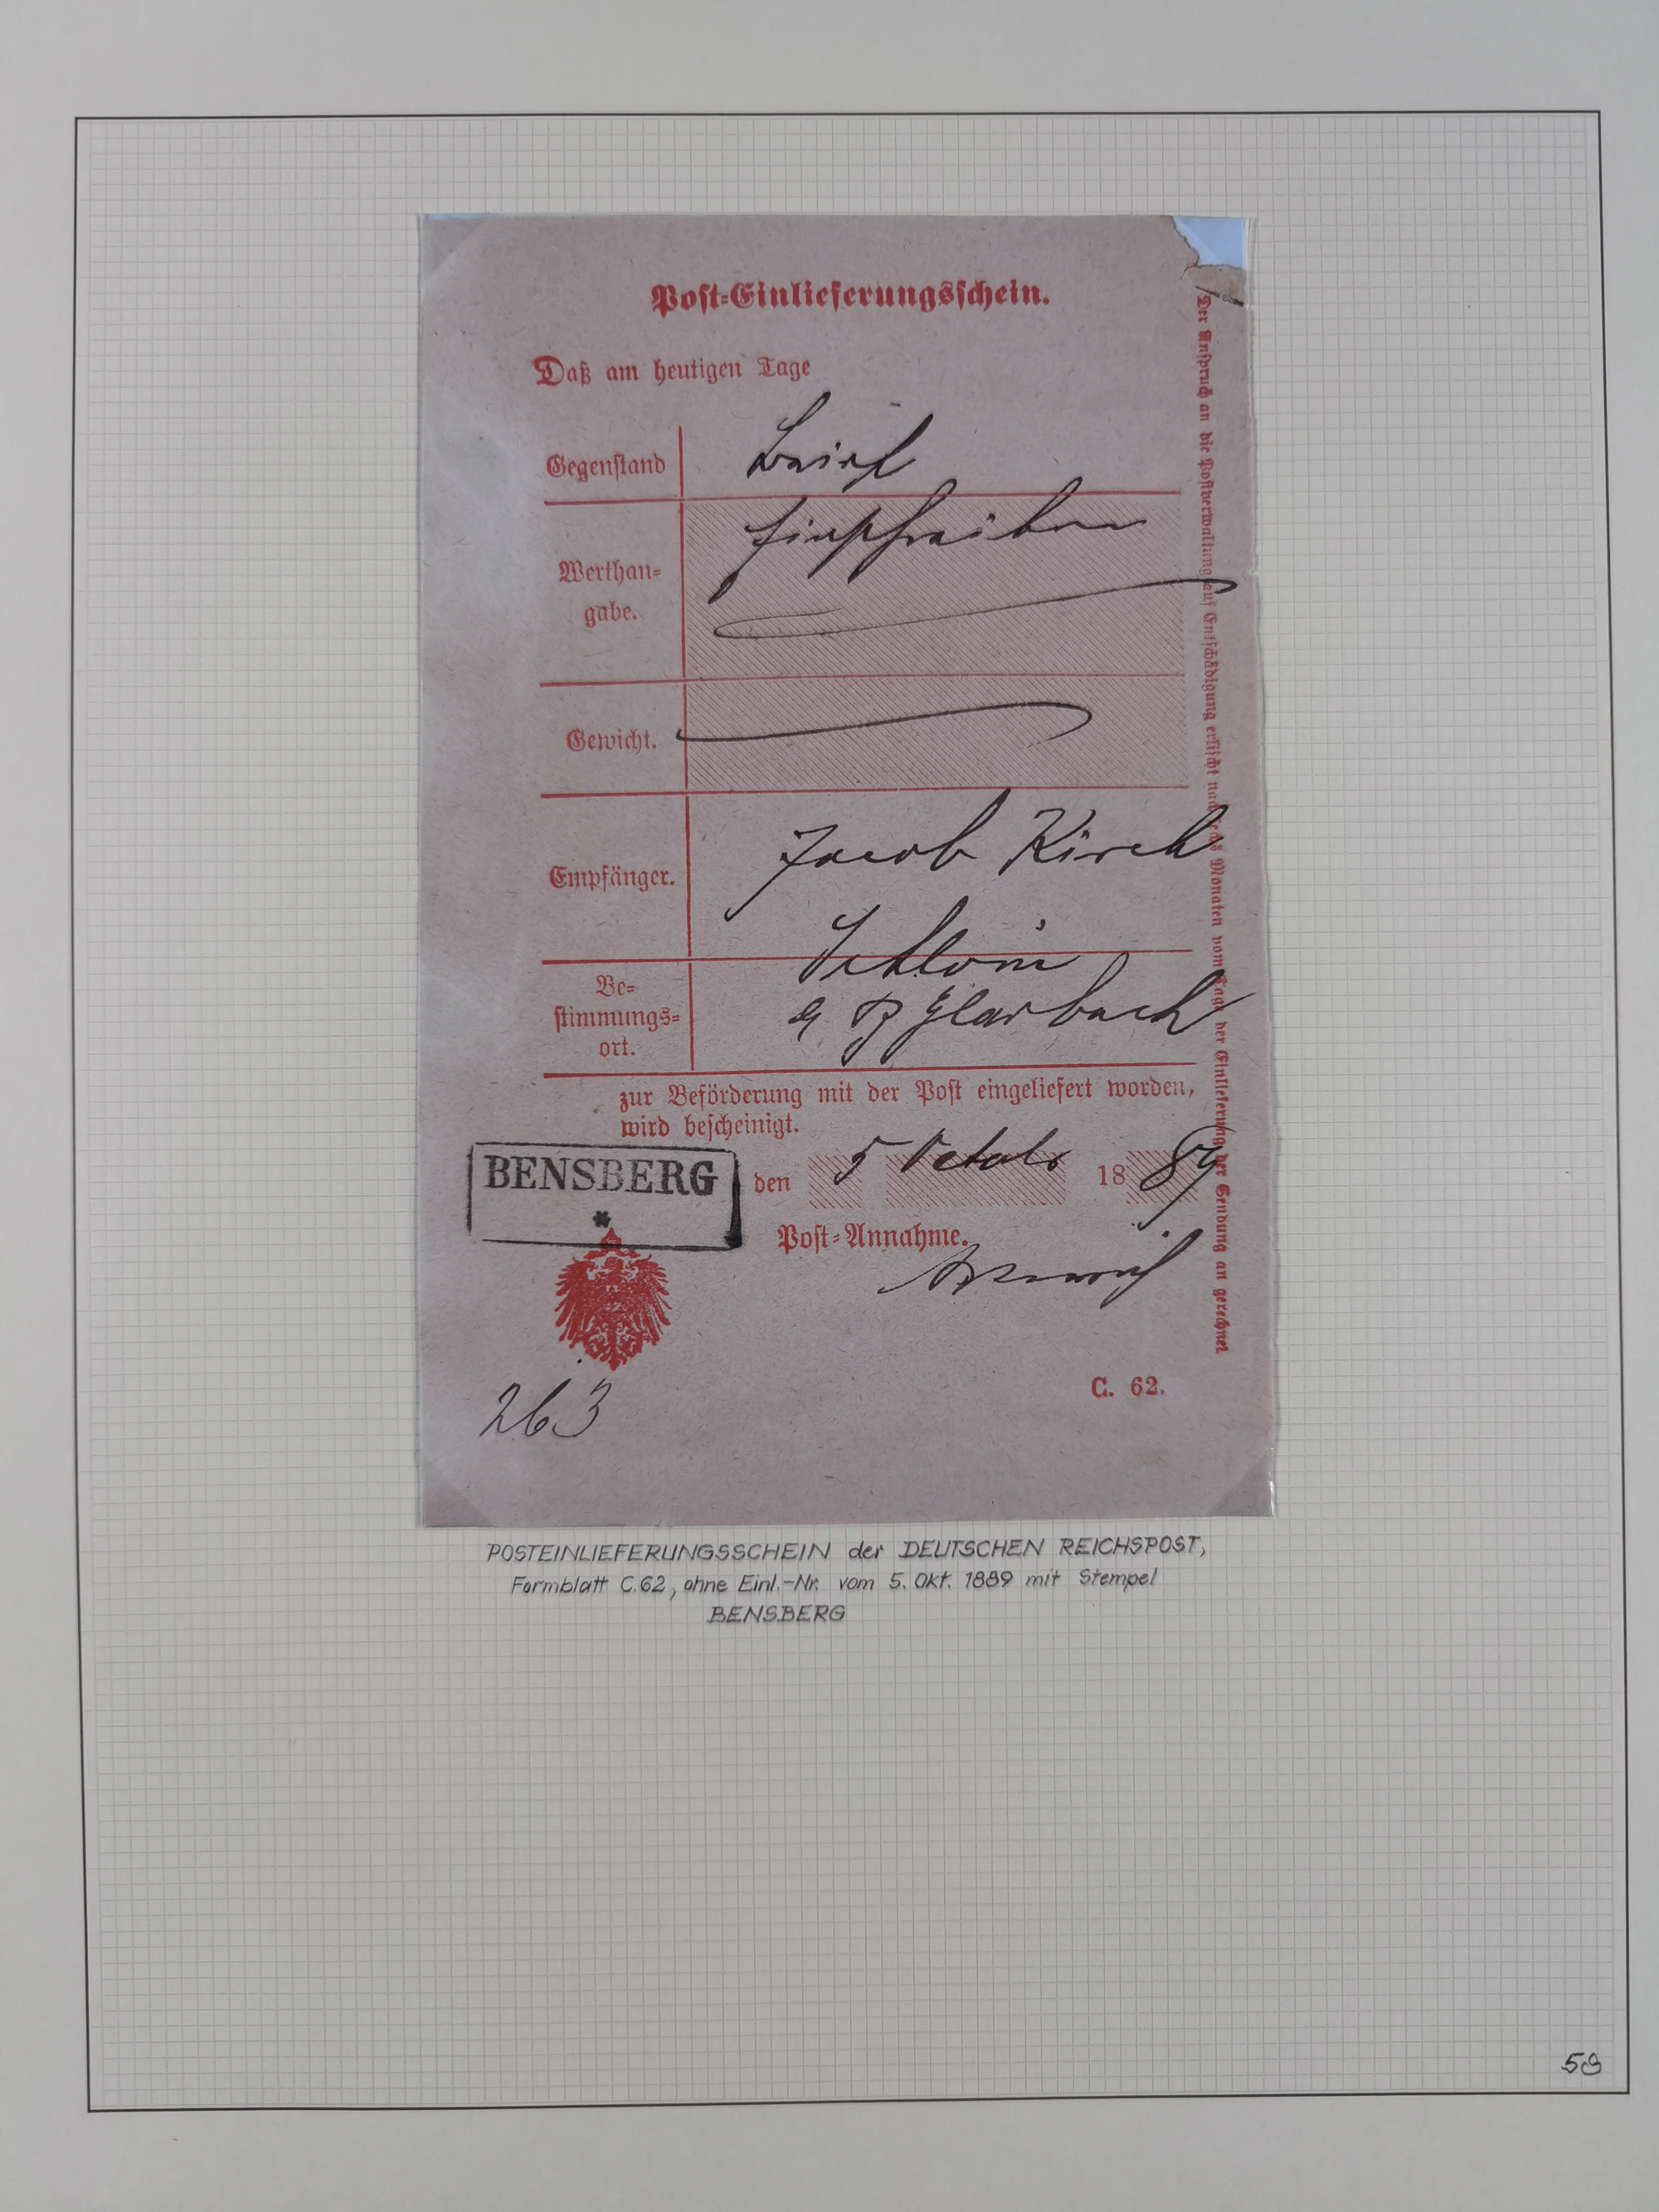 Post-Einlieferungsschein.
Daß am heutigen Tage
Gegenstand
Brief
Werthan-
gabe.
Einschreiben
Gewicht.
Empfänger.
Jacob Kirch
Be-
stimmungs-
ort.
Gladbach
zur Beförderung mit der Post eingeliefert worden,
wird bescheinigt.
BENSBERG
den 5 Octob 1889
Post-Annahme.
C. 62.
263
Der Anspruch an die Postverwaltung auf Entschädigung erlischt nach sechs Monaten vom Tage der Einlieferung der Sendung an gerechnet
POSTEINLIEFERUNGSSCHEIN der DEUTSCHEN REICHSPOST,
Formblatt C.62, ohne Einl.-Nr. vom 5. Okt. 1889 mit Stempel
BENSBERG
59